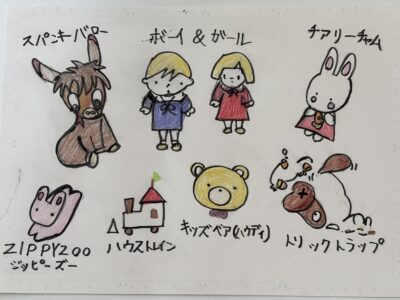 スパンキバロー
ボーイ & ガール
チアリーチャム
ZIPPYZOO
ジッピーズー
ハウストレイン
キッズベア(ハウディ)
トリックトラップ